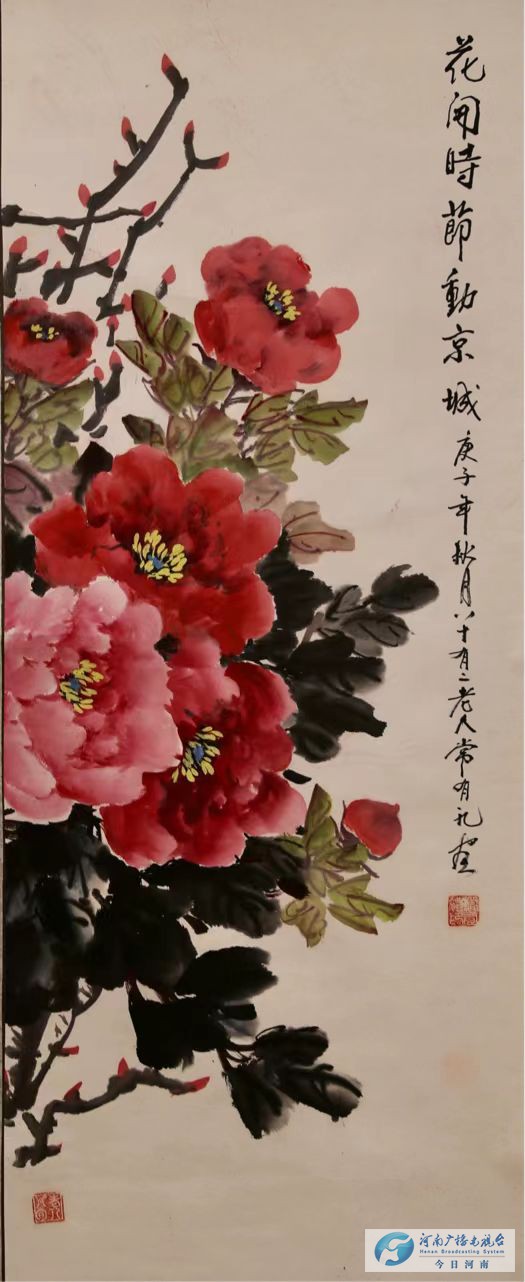 花開時節動京城
庚子年秋月八十有二老人常有礼画
河南广播电视台
Henan Broadcasting System
今日河南